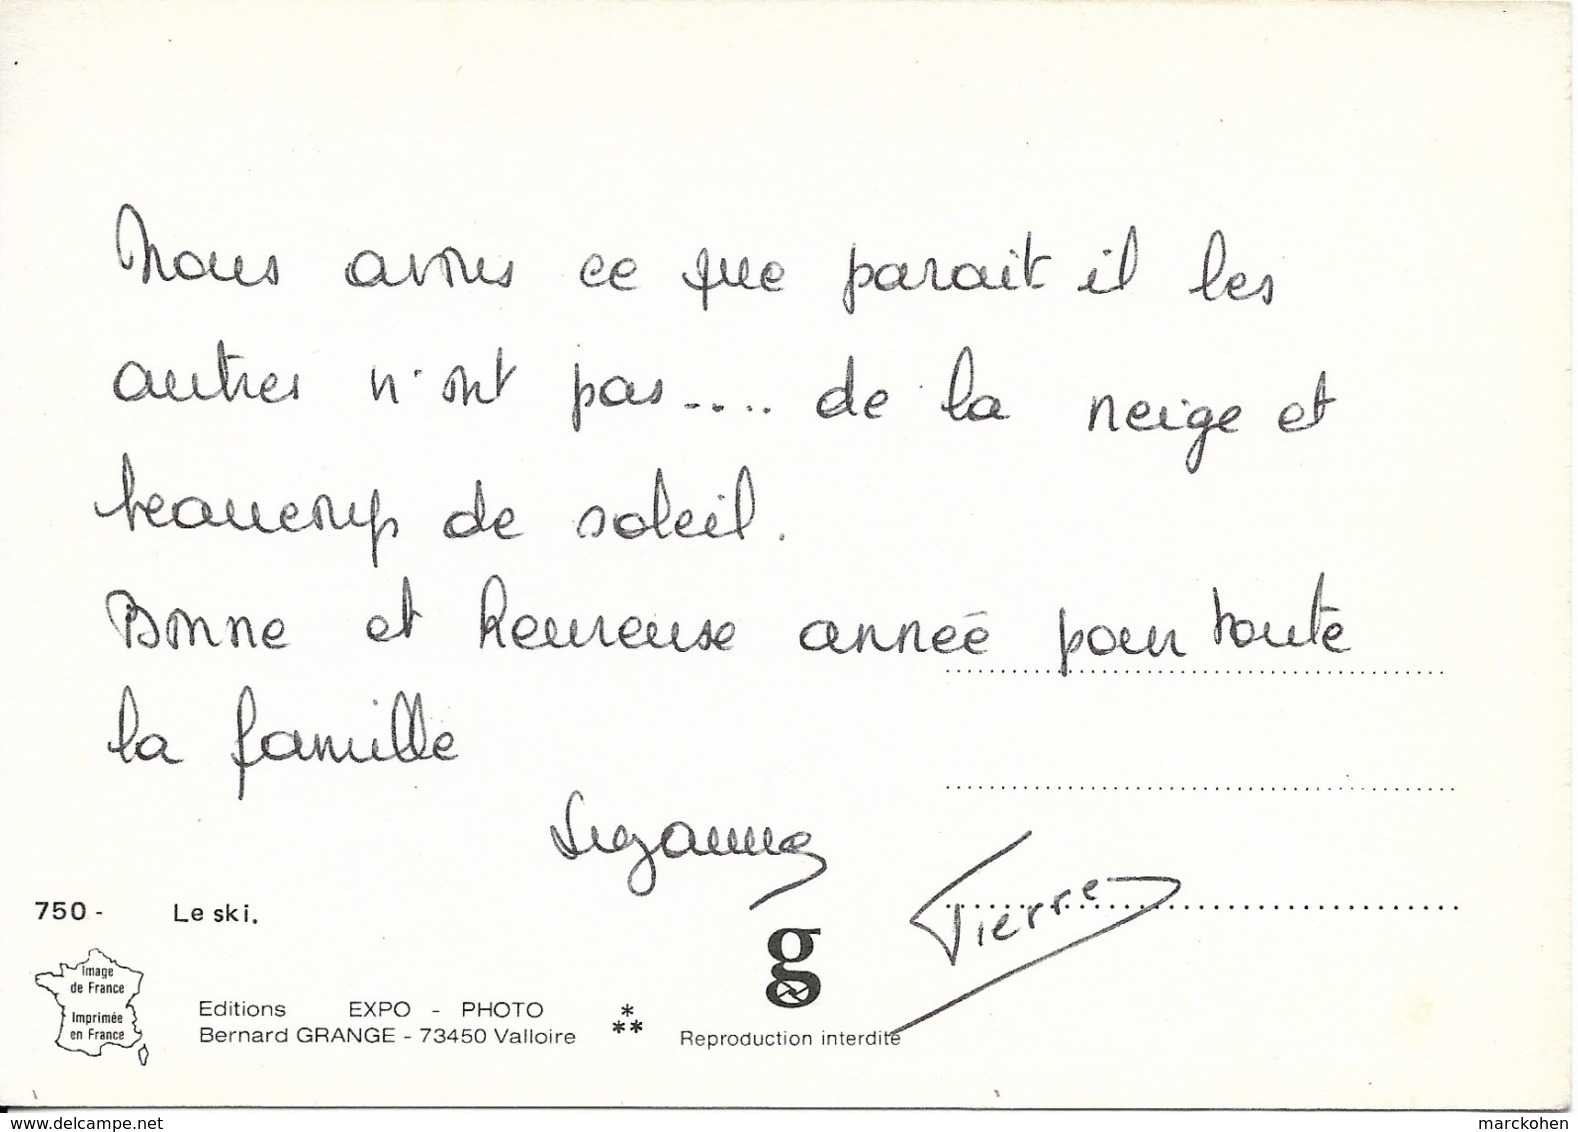 Nous avons ce que parait il les
autres n'ont pas.... de la neige et
beaucoup de soleil.
Bonne et heureuse année pour toute
la famille
Suzanne
Pierre
750 - Le ski.
Image
de France
Imprimée
en France
Editions EXPO - PHOTO
Bernard GRANGE - 73450 Valloire
*
**
g
Reproduction interdite
www.delcampe.net
marckohen